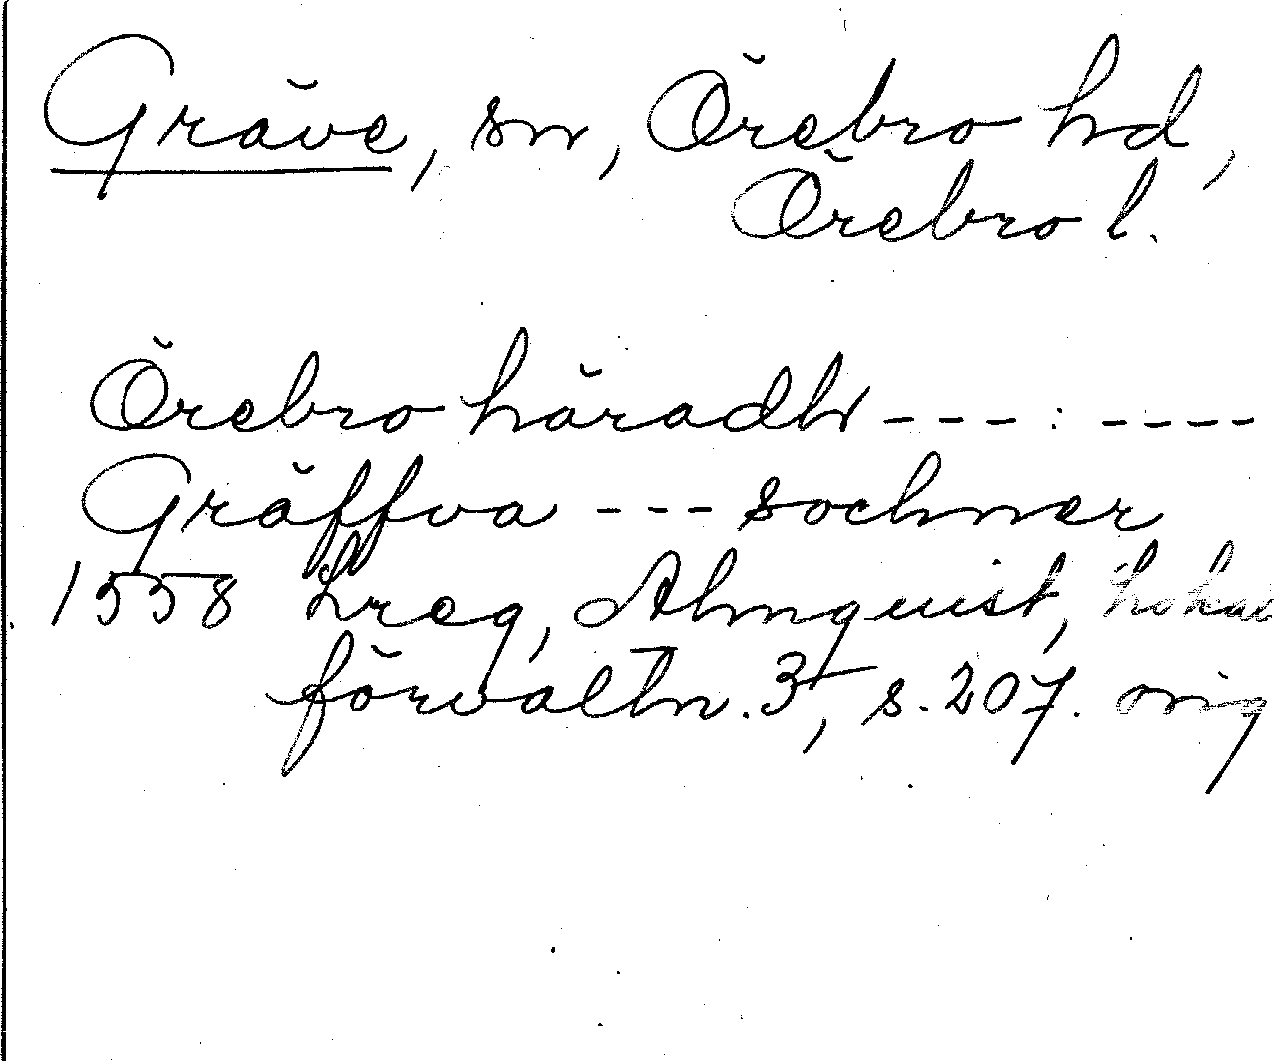 Gräve, sn, Örebro hd,
Örebro l.
Örebro häradh - - - : - - - -
Gräffva - - - sochner
1558 Lreg, Almquist, Lokal
förvaltn. 3, s. 207. orig